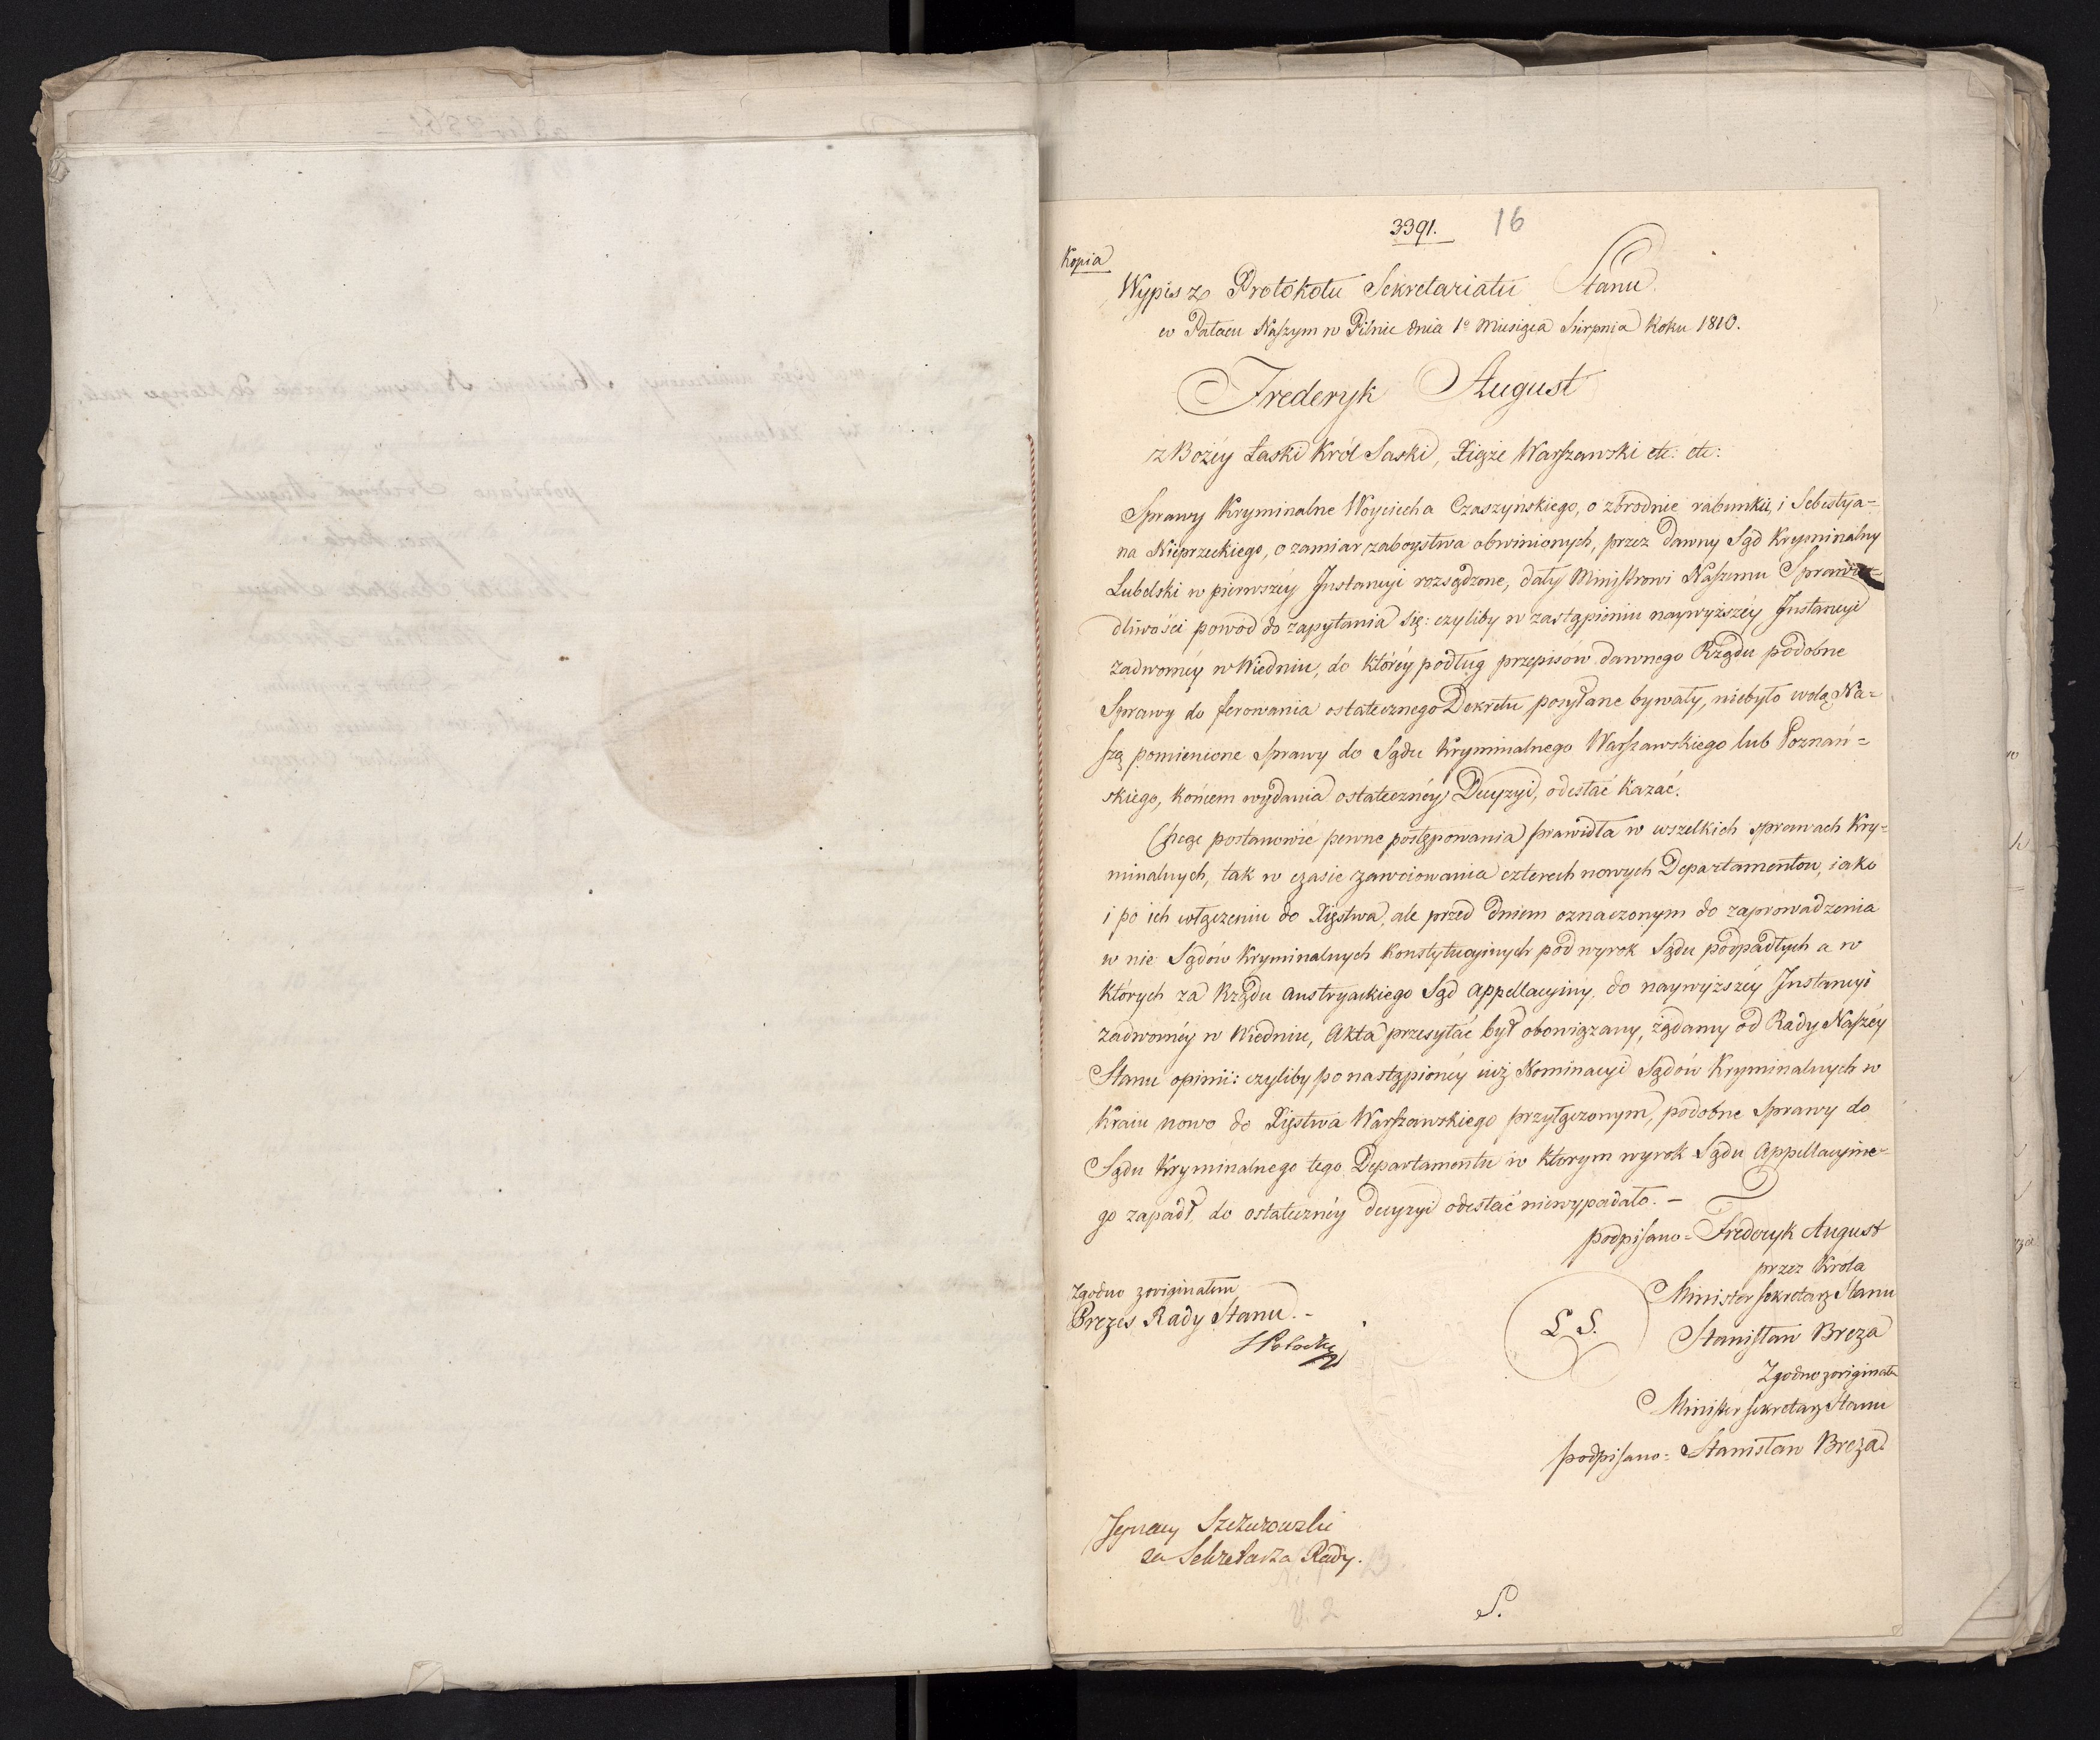 3391. 16
Kopia
Wypis z Protokołu Sekretariatu Stanu
w Pałacu Naszym w Pilnic dnia 1º Miesiąca Sierpnia Roku 1810.
Frederyk August
z Bożéy Łaski Król Saski, Xiąże Warszawski etc: etc:
Sprawy Kryminalne Woyciecha Czaszyńskiego, o zbrodnie rabunku, i Sebestya=
na Nieprzeckiego, o zamiar zaboystwa obwinionych, przez dawny Sąd Kryminalny
Lubelski w pierwszéy Instancyi rozsądzone, dały Ministrowi Naszemu Sprawie=
dliwości powod do zapytania się: czyliby w zastąpieniu naywyższéy Instancyi
zadwornéy w Wiedniu, do któréy podług przepisów dawnego Rządu podobne
Sprawy do ferowania ostatecznego Dekretu posyłane bywały, niebyło wolą Na=
szą pomienione Sprawy do Sądu Kryminalnego Warszawskiego lub Poznań=
skiego, końcem wydania ostatecznéy Decyzyi, odesłać kazać.
Chcąc postanowić pewne postępowania prawidła w wszelkich sprawach Kry=
minalnych, tak w czasie zawoiowania czterech nowych Departamentow, iako
i po ich włączeniu do Xięstwa, ale przed dniem oznaczonym do zaprowadzenia
w nie Sądów Kryminalnych Konstytucyinych pod wyrok Sądu podpadłych a w
których za Rządu Austryackiego Sąd Appellacyiny, do naywyższéy Instancyi
zadwornéy w Wiedniu, Akta przesyłać był obowiązany, żądamy od Rady Naszéy
Stanu opinii: czyliby po nastąpionéy iuż Nominacyi Sądów Kryminalnych w
Kraiu nowo do Xięstwa Warszawskiego przyłączonym, podobne Sprawy do
Sądu Kryminalnego tego Departamentu w którym wyrok Sądu Appellacyine=
go zapadł, do ostatecznéy decyzyi odesłać niewypadało. –
podpisano = Frederyk August
przez Króla
Minister Sekretarz Stanu
L. S.
Stanisław Breza
Zgodno z originałem
Prezes Rady Stanu. –
S Potocki
Zgodno z originałe
Minister Sekretarz Stanu
podpisano = Stanisław Breza
Ignacy Szczurowski
za Sekretarza Rady.
V. 2
S.